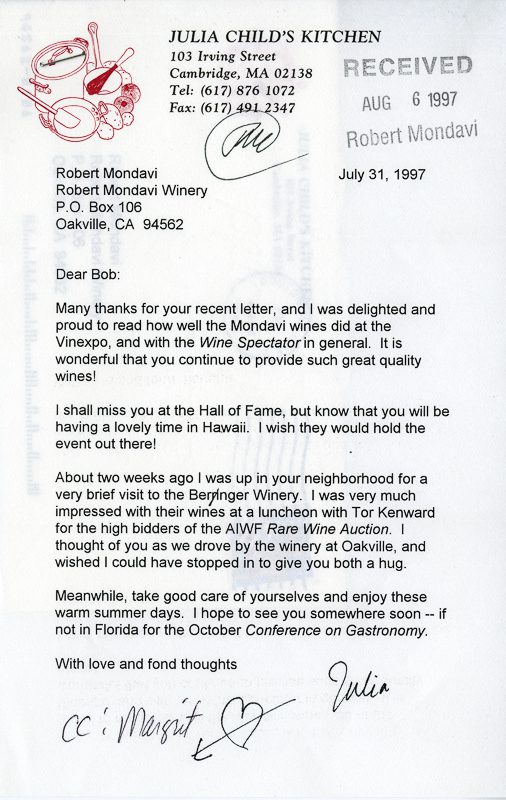 JULIA CHILD'S KITCHEN
103 Irving Street
Cambridge, MA 02138
Tel: (617) 876 1072
Fax: (617) 491 2347
RECEIVED
AUG 6 1997
Robert Mondavi
Robert Mondavi
July 31, 1997
Robert Mondavi Winery
P.O. Box 106
Oakville, CA 94562
Dear Bob:
Many thanks for your recent letter, and I was delighted and
proud to read how well the Mondavi wines did at the
Vinexpo, and with the Wine Spectator in general. It is
wonderful that you continue to provide such great quality
wines!
I shall miss you at the Hall of Fame, but know that you will be
having a lovely time in Hawaii. I wish they would hold the
event out there!
About two weeks ago I was up in your neighborhood for a
very brief visit to the Beringer Winery. I was very much
impressed with their wines at a luncheon with Tor Kenward
for the high bidders of the AIWF Rare Wine Auction. I
thought of you as we drove by the winery at Oakville, and
wished I could have stopped in to give you both a hug.
Meanwhile, take good care of yourselves and enjoy these
warm summer days. I hope to see you somewhere soon -- if
not in Florida for the October Conference on Gastronomy.
With love and fond thoughts
Julia
CC: Margrit